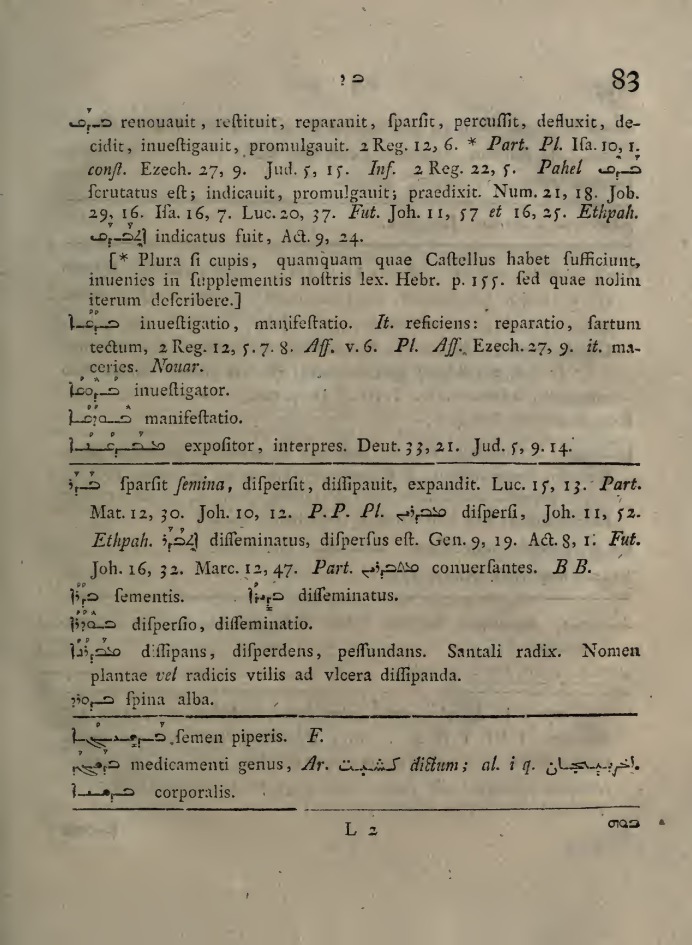 ܒܕ 83
ܒܕܩ renouauit, reſtituit, reparauit, ſparſit, percuſſit, defluxit, de-
cidit, inueſtigauit, promulgauit. 2 Reg. 12, 6. * Part. Pl. Iſa. 10, 1.
conſt. Ezech. 27, 9. Jud. 5, 15. Inf. 2 Reg. 22, 5. Pahel ܒܕܩ
ſcrutatus eſt; indicauit, promulgauit; praedixit. Num. 21, 18. Job.
29, 16. Iſa. 16, 7. Luc. 20, 37. Fut. Joh. 11, 57 et 16, 25. Ethpah.
ܐܬܒܕܩ indicatus fuit, Act. 9, 24.
[* Plura ſi cupis, quamquam quae Caſtellus habet ſufficiunt,
inuenies in ſupplementis noſtris lex. Hebr. p. 155. ſed quae nolim
iterum deſcribere.]
ܒܕܩܐ inueſtigatio, manifeſtatio. It. reficiens: reparatio, ſartum
tectum, 2 Reg. 12, 5. 7. 8. Aff. v. 6. Pl. Aff. Ezech. 27, 9. it. ma-
ceries. Nouar.
ܒܕܘܩܐ inueſtigator.
ܒܘܕܩܐ manifeſtatio.
ܡܒܕܩܢܐ expoſitor, interpres. Deut. 33, 21. Jud. 5, 9. 14.
ܒܕܪ ſparſit femina, diſperſit, diſſipauit, expandit. Luc. 15, 13. Part.
Mat. 12, 30. Joh. 10, 12. P. P. Pl. ܡܒܕܪܝܢ diſperſi, Joh. 11, 52.
Ethpah. ܐܬܒܕܪ diſſeminatus, diſperſus eſt. Gen. 9, 19. Act. 8, 1. Fut.
Joh. 16, 32. Marc. 12, 47. Part. ܡܬܒܕܪܝܢ conuerſantes. B B.
ܒܕܪܐ ſementis. ܒܕܝܪܐ diſſeminatus.
ܒܘܕܪܐ diſperſio, diſſeminatio.
ܡܒܕܪܢܐ diſſipans, diſperdens, peſſundans. Santali radix. Nomen
plantae vel radicis vtilis ad vlcera diſſipanda.
ſpina alba.
ſemen piperis. F.
medicamenti genus, Ar. dictum; al. i q.
corporalis.
L 2